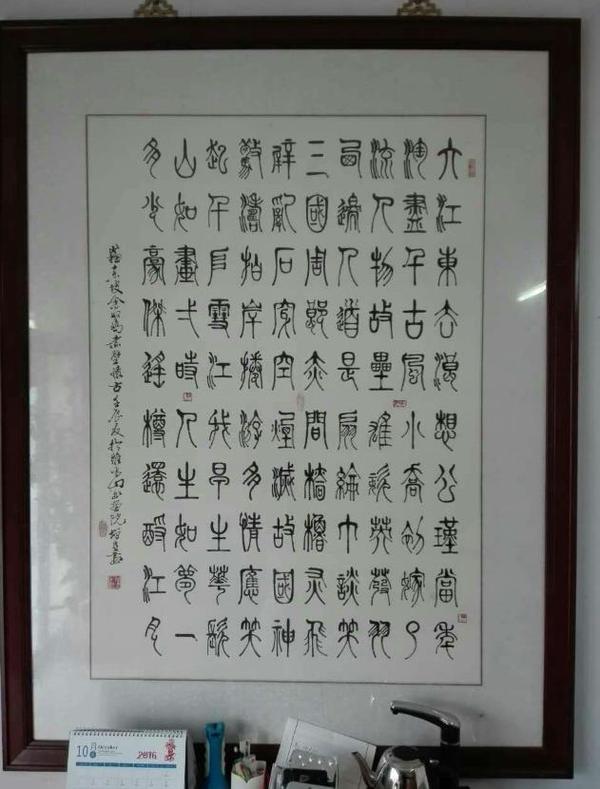 大江東去浪
淘盡千古風
流人物故壘
西邊人道是
三國周郎赤
壁亂石穿空
驚濤拍岸捲
起千堆雪江
山如畫一時
多少豪傑遙
想公瑾當年
小喬初嫁了
雄姿英發羽
扇綸巾談笑
間檣櫓灰飛
煙滅故國神
游多情應笑
我早生華髮
人生如夢一
樽還酹江月
蘇東坡念奴嬌赤壁懷古壬辰夏於
10月 October 2016